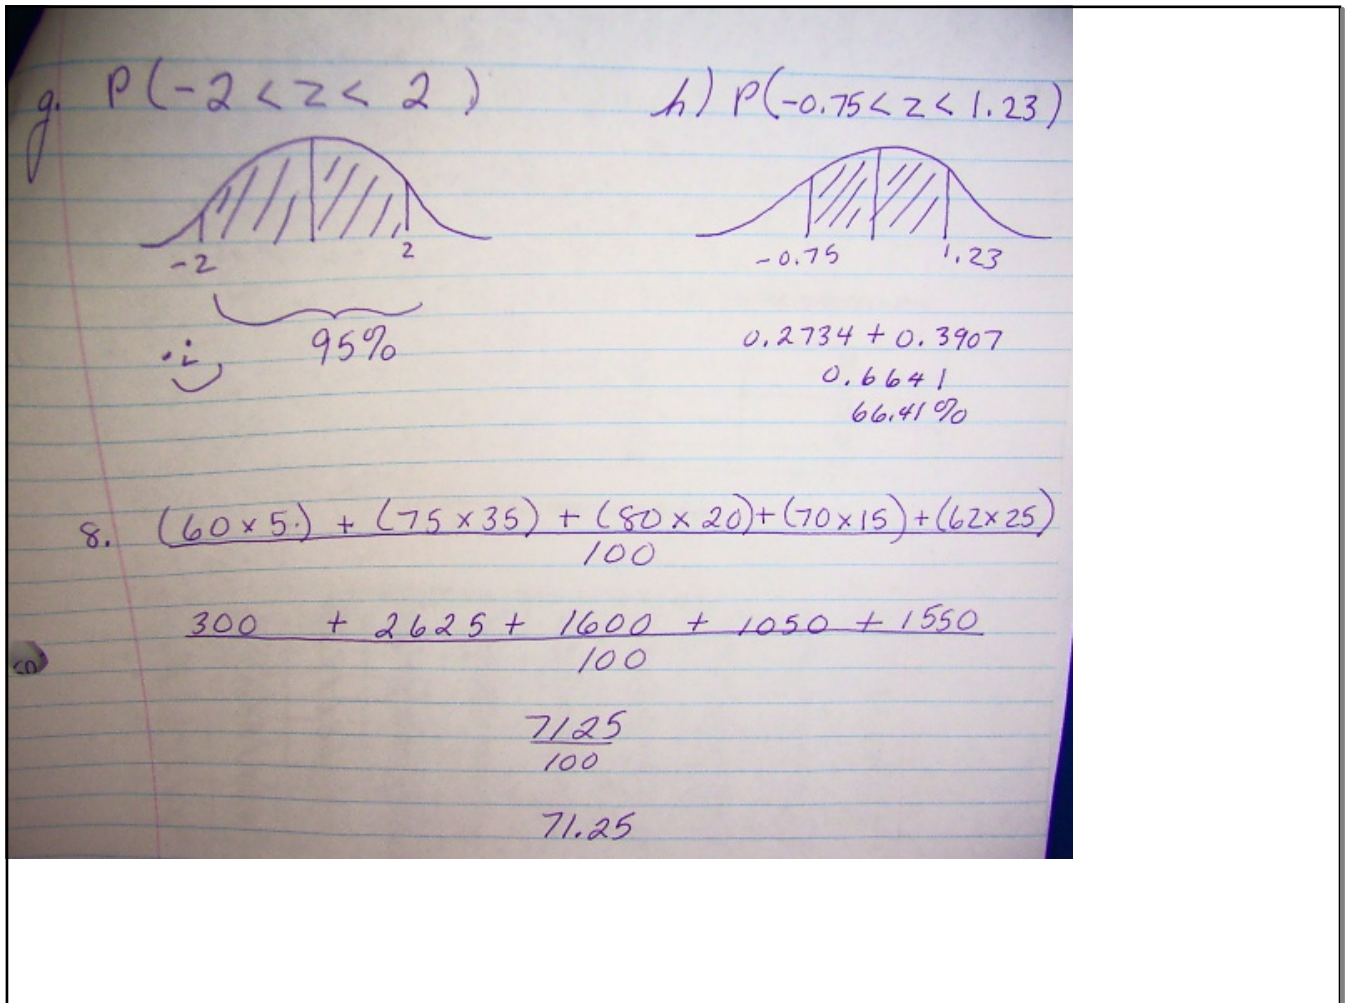 g. P(-2 < z < 2)
-2 2
95%
h) P(-0.75 < z < 1.23)
-0.75 1.23
0.2734 + 0.3907
0.6641
66.41%
8. (60 x 5.) + (75 x 35) + (80 x 20) + (70 x 15) + (62 x 25)
100
300 + 2625 + 1600 + 1050 + 1550
100
7125
100
71.25